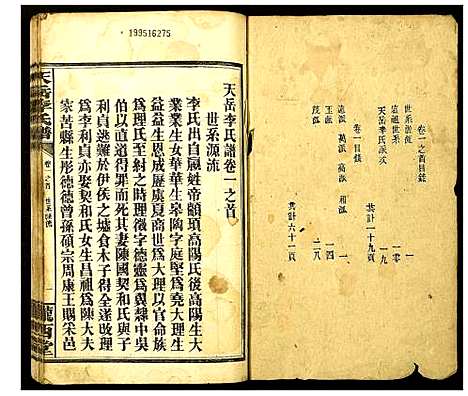 卷一之首目錄
世系源流 一
遠祖世系 一〇
天岳李氏派次
共計一十九頁
卷一目錄
遠派 萬派 和派 一
玉派 一四
茂派 二八
共計六十一頁
199516275
天岳李氏譜卷一之首
世系源流
李氏出自嬴姓帝顓頊高陽氏後高陽生大
業業生女華華生皋陶字庭堅為堯大理生
益益生恩成歷虞夏商世為大理以官命族
為理氏至紂之時理徵字德靈為翼隸中吳
伯以直道不容得罪而死其妻陳國契和氏與子
利貞逃難於伊侯之墟食木子得全遂改理
為李利貞亦娶契和氏女生昌祖為陳大夫
家苦縣生彤德德曾孫碩宗周康王賜采邑
天岳李氏譜
卷一之首 世系源流
隴西堂